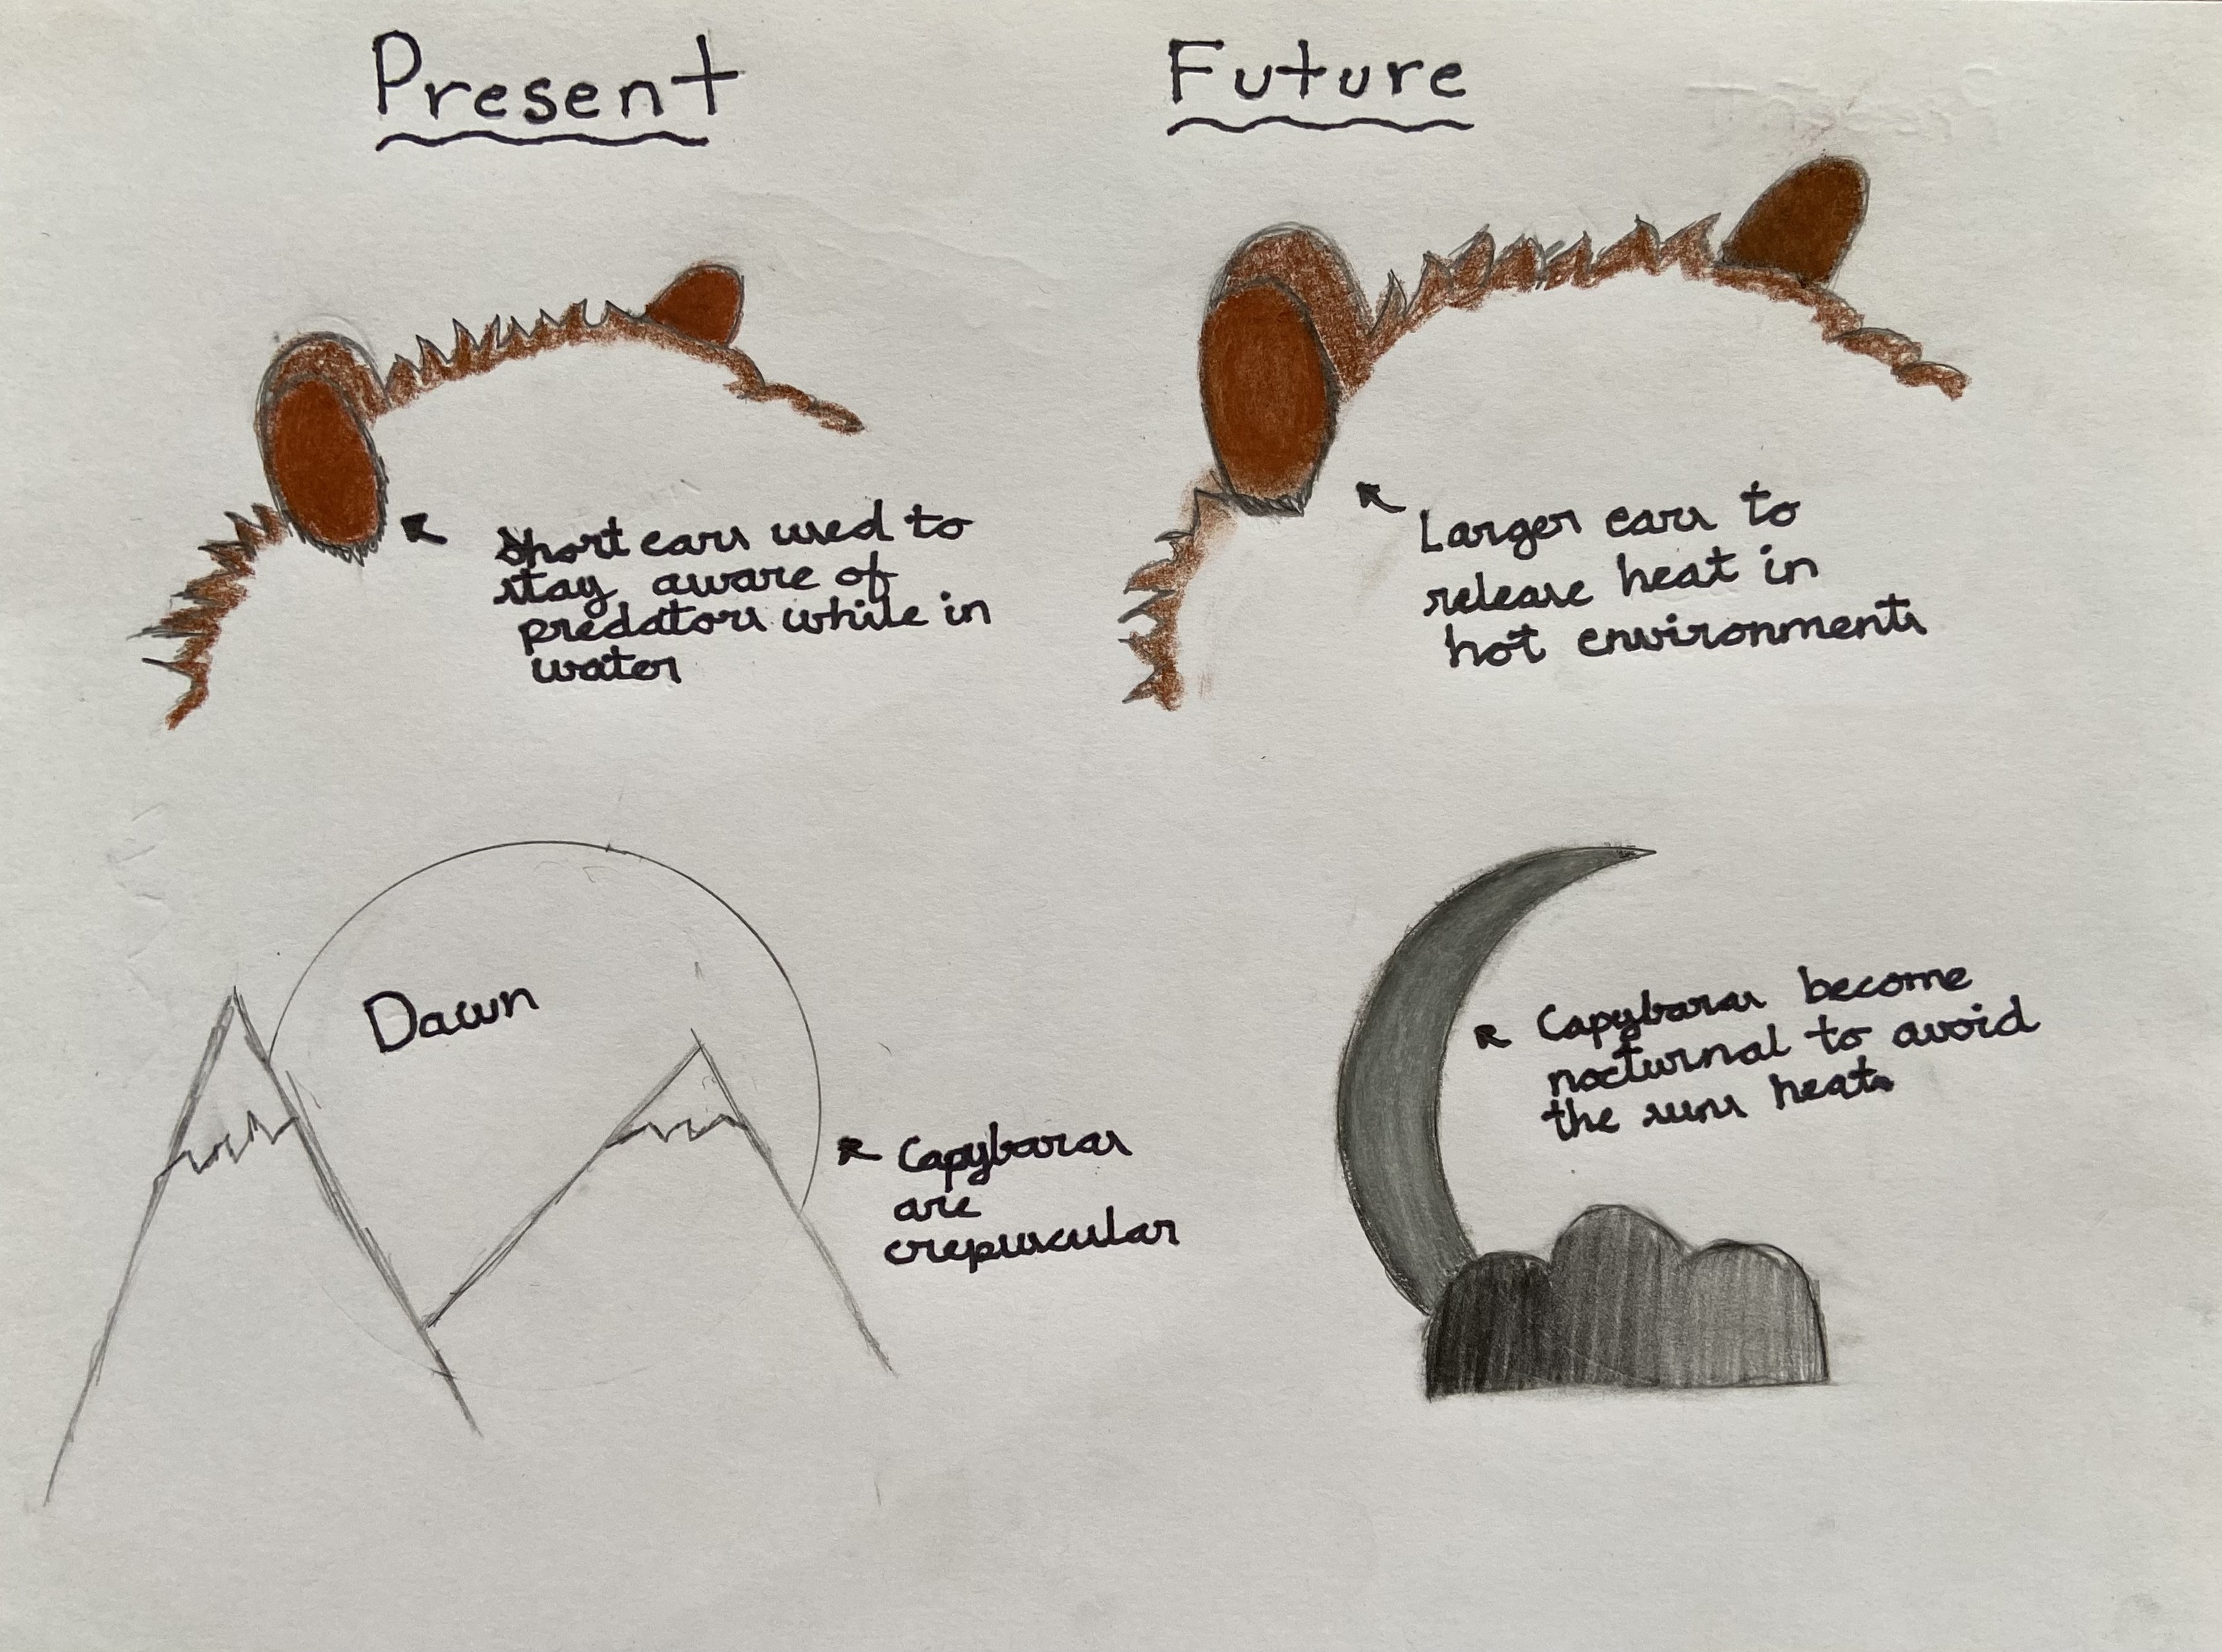 Present
Future
Short ears used to
stay aware of
predators while in
water
Larger ears to
release heat in
hot environments
Dawn
Capybaras
are
crepuscular
Capybaras become
nocturnal to avoid
the suns heat.